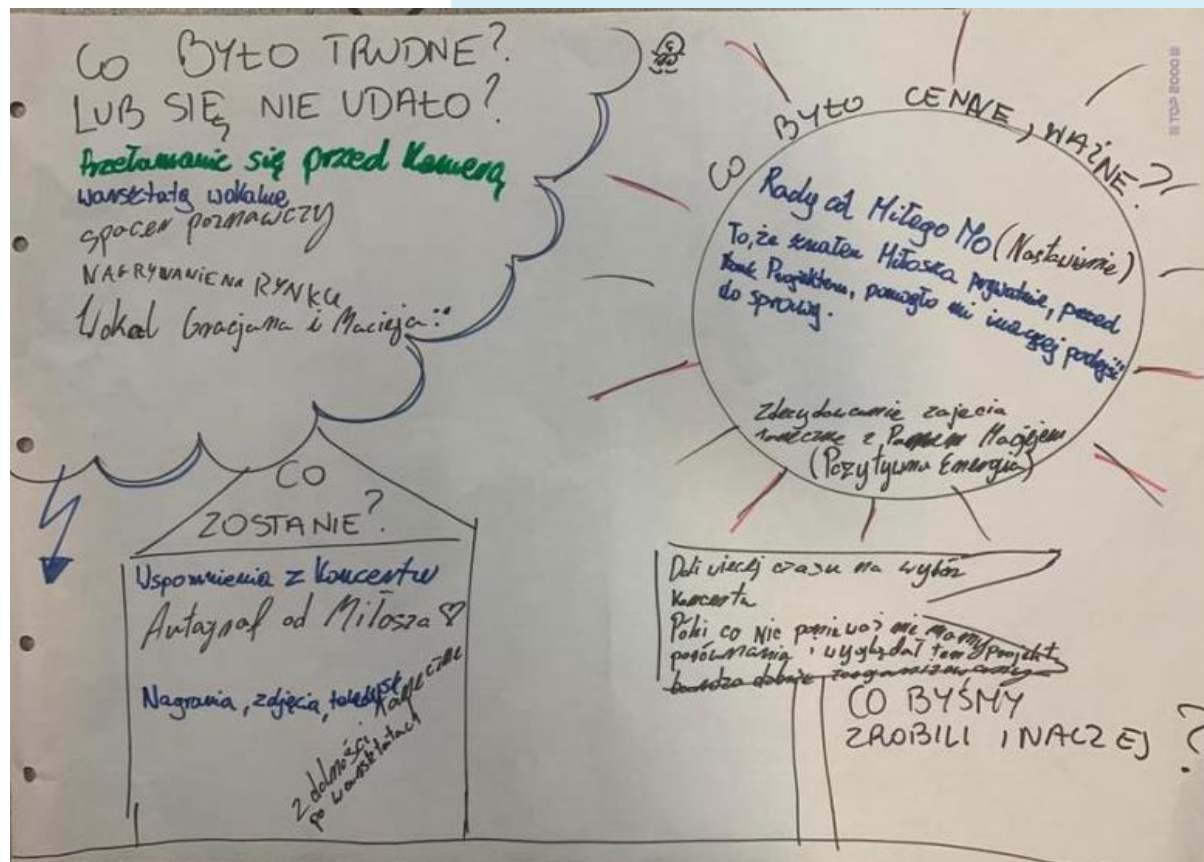 CO BYŁO TRUDNE?
LUB SIĘ NIE UDAŁO?
Przełamanie się przed Kamerą
warsztaty wokalne
spacer poznawczy
NAGRYWANIE NA RYNKU
Wokal Gracjana i Macieja
CO BYŁO CENNE, WAŻNE?
Rady od Miłego Mo (Nastawienie)
To, że znałem Miłoszka prywatnie, przed
Projektem, pomogło mi inaczej podejść
do sprawy.
Zdecydowanie zajęcia
taneczne z Panem Maciejem
(Pozytywna Energia)
CO
ZOSTANIE?
Wspomnienia z Koncertu
Autograf od Miłosza ♡
Nagrania, zdjęcia, teledysk
Zdolności taneczne
po warsztatach
Dali więcej czasu na wybór
Koncertu
Póki co Nic ponieważ nie mamy
porównania i wyglądał ten projekt
bardzo dobrze zorganizowany
CO BYŚMY
ZROBILI INACZEJ
?
TOP 2000